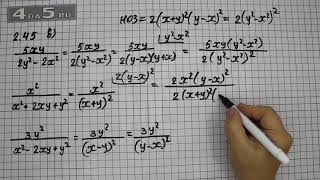 4DA5.RU
2.45 в) НОЗ = 2(x+y)²(y-x)² = 2(y²-x²)²
5xy / 2y²-2x² = 5xy / 2(y²-x²) = 5xy / 2(y-x)(y+x) = 5xy(y²-x²) / 2(y²-x²)²
x² / x²+2xy+y² = x² / (x+y)² = 2x²(y-x)² / 2(x+y)²(
2(y-x)²
3y² / x²-2xy+y² = 3y² / (x-y)² = 3y² / (y-x)²